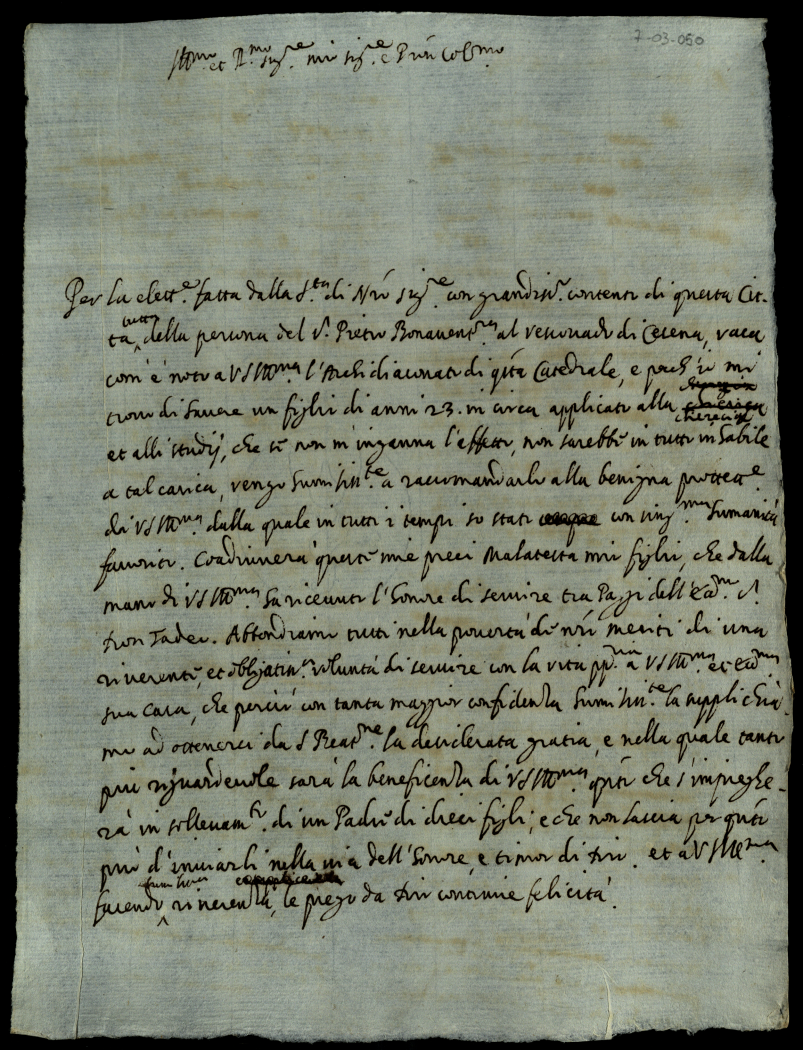 7-03-050
Ill.mo et R.mo sig.re mio sig.re e P̃rõn Col.mo
Per la elett.e fatta dalla S.tà di Nr̃o sig.re con grandiss.o contento di questa Cit-
tà tutta, della persona del s.r Pietro Bonavent.ra al vescovado di Cesena, vaca
com'è noto a VS Ill.ma l'Archidiaconato di q̃ta Catedrale, e perch'io mi
trovo di havere un figlio di anni 23. in circa applicato alla chierica
et alli studij, che se non m'inganna l'affetto, non sarebbe in tutto inhabile
a tal carica, vengo humiliss.te a raccomandarlo alla benigna protett.e
di VS Ill.ma dalla quale in tutti i tempi so stato con sing.ma humanità
favorito. Coadiuverà queste mie preci Malatesta mio figlio, che dalla
mano di VS Ill.ma ha ricevuto l'honore di servire tra Paggi dell'Ecc.mo s.r
Don Tadeo. Abbondiamo tutti nella povertà de nr̃i meriti di una
riverente, et obligatiss.a voluntà di servire con la vita pp.ria a VS Ill.ma et Ecc.ma
sua Casa, che perciò con tanta maggior confidenza humiliss.te la supplichia-
mo ad ottenerci da S Beat.ne la desiderata gratia, e nella quale tanto
più riguardevole sarà la beneficenza di VS Ill.ma q̃nto che s'impieghe-
rà in sollevam.to di un Padre di dieci figli, e che non lascia per q̃nto
può d'inviarli nella via dell'honore, e timor di Dio. et a VS Ill.ma
facendo humiliss.a riverenza, le prego da Dio continue felicità.